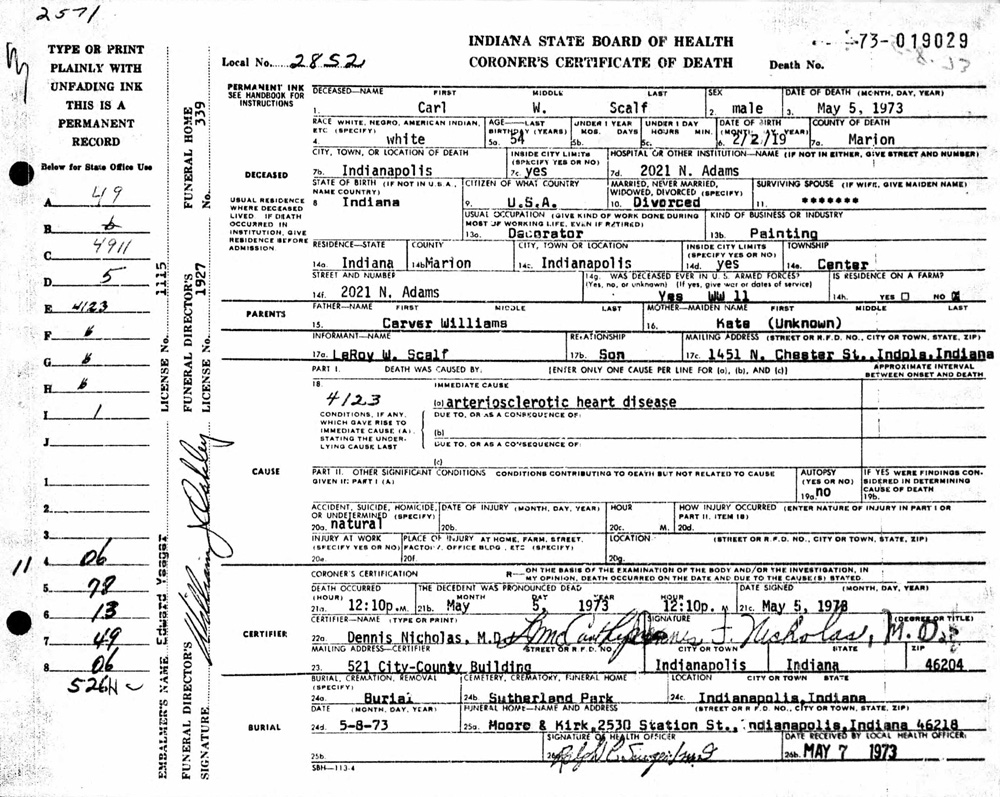 2571
INDIANA STATE BOARD OF HEALTH
CORONER'S CERTIFICATE OF DEATH
Local No. 2852
Death No. 73-019029
TYPE OR PRINT
PLAINLY WITH
UNFADING INK
THIS IS A
PERMANENT
RECORD
Below for State Office Use
A 49
B 6
C 4911
D 5
E 4123
F 6
G 6
H 6
I 1
J
1
2
3
4 06
5 78
6 13
7 49
8 06
526N
11
EMBALMER'S NAME Edward Yeager LICENSE No. 1115
FUNERAL DIRECTOR'S SIGNATURE
FUNERAL DIRECTOR'S LICENSE No. 1927
FUNERAL HOME No. 339
PERMANENT INK
SEE HANDBOOK FOR
INSTRUCTIONS
DECEASED
USUAL RESIDENCE
WHERE DECEASED
LIVED. IF DEATH
OCCURRED IN
INSTITUTION, GIVE
RESIDENCE BEFORE
ADMISSION.
DECEASED—NAME FIRST MIDDLE LAST SEX DATE OF DEATH (MONTH, DAY, YEAR)
1. Carl W. Scalf 2. male 3. May 5, 1973
RACE WHITE, NEGRO, AMERICAN INDIAN, ETC (SPECIFY) AGE—LAST BIRTHDAY (YEARS) UNDER 1 YEAR MOS. DAYS UNDER 1 DAY HOURS MIN. DATE OF BIRTH (MONTH, DAY, YEAR) COUNTY OF DEATH
4. white 5a. 54 5b. 5c. 6. 2/2/19 7a. Marion
CITY, TOWN, OR LOCATION OF DEATH INSIDE CITY LIMITS (SPECIFY YES OR NO) HOSPITAL OR OTHER INSTITUTION—NAME (IF NOT IN EITHER, GIVE STREET AND NUMBER)
7b. Indianapolis 7c. yes 7d. 2021 N. Adams
STATE OF BIRTH (IF NOT IN U.S.A., NAME COUNTRY) CITIZEN OF WHAT COUNTRY MARRIED, NEVER MARRIED, WIDOWED, DIVORCED (SPECIFY) SURVIVING SPOUSE (IF WIFE, GIVE MAIDEN NAME)
8 Indiana 9. U.S.A. 10. Divorced 11. *******
USUAL OCCUPATION (GIVE KIND OF WORK DONE DURING MOST OF WORKING LIFE, EVEN IF RETIRED) KIND OF BUSINESS OR INDUSTRY
13a. Decorator 13b. Painting
RESIDENCE—STATE COUNTY CITY, TOWN OR LOCATION INSIDE CITY LIMITS (SPECIFY YES OR NO) TOWNSHIP
14a. Indiana 14b Marion 14c. Indianapolis 14d. yes 14e. Center
STREET AND NUMBER 14g. WAS DECEASED EVER IN U.S. ARMED FORCES? (Yes, no, or unknown) (If yes, give war or dates of service) IS RESIDENCE ON A FARM?
14f. 2021 N. Adams Yes WW 11 14h. YES NO X
PARENTS
FATHER—NAME FIRST MIDDLE LAST MOTHER—MAIDEN NAME FIRST MIDDLE LAST
15. Carver Williams 16. Kate (Unknown)
INFORMANT—NAME RELATIONSHIP MAILING ADDRESS (STREET OR R.F.D. NO., CITY OR TOWN, STATE, ZIP)
17a. LeRoy W. Scalf 17b. Son 17c. 1451 N. Chester St., Indpls, Indiana
PART I. DEATH WAS CAUSED BY: [ENTER ONLY ONE CAUSE PER LINE FOR (a), (b), AND (c)] APPROXIMATE INTERVAL BETWEEN ONSET AND DEATH
CAUSE
18. IMMEDIATE CAUSE
4123 (a) arteriosclerotic heart disease
CONDITIONS, IF ANY, WHICH GAVE RISE TO IMMEDIATE CAUSE (A). STATING THE UNDERLYING CAUSE LAST
DUE TO, OR AS A CONSEQUENCE OF:
(b)
DUE TO, OR AS A CONSEQUENCE OF:
(c)
PART II. OTHER SIGNIFICANT CONDITIONS CONDITIONS CONTRIBUTING TO DEATH BUT NOT RELATED TO CAUSE GIVEN IN PART I (A) AUTOPSY (YES OR NO) IF YES WERE FINDINGS CONSIDERED IN DETERMINING CAUSE OF DEATH
19a. no 19b.
ACCIDENT, SUICIDE, HOMICIDE, OR UNDETERMINED (SPECIFY) DATE OF INJURY (MONTH, DAY, YEAR) HOUR HOW INJURY OCCURRED (ENTER NATURE OF INJURY IN PART I OR PART II, ITEM 18)
20a. natural 20b. 20c. M. 20d.
INJURY AT WORK (SPECIFY YES OR NO) PLACE OF INJURY AT HOME, FARM, STREET, FACTORY, OFFICE BLDG., ETC (SPECIFY) LOCATION (STREET OR R.F.D. NO., CITY OR TOWN, STATE, ZIP)
20e. 20f. 20g.
CERTIFIER
CORONER'S CERTIFICATION R— ON THE BASIS OF THE EXAMINATION OF THE BODY AND/OR THE INVESTIGATION, IN MY OPINION, DEATH OCCURRED ON THE DATE AND DUE TO THE CAUSE(S) STATED.
DEATH OCCURRED (HOUR) THE DECEDENT WAS PRONOUNCED DEAD MONTH DAY YEAR HOUR DATE SIGNED (MONTH, DAY, YEAR)
21a. 12:10p.M. 21b. May 5, 1973 12:10p. M 21c. May 5, 1973
CERTIFIER—NAME (TYPE OR PRINT) SIGNATURE (DEGREE OR TITLE)
22a. Dennis Nicholas, M.D. Dennis J. Nicholas, M.D.
MAILING ADDRESS—CERTIFIER STREET OR R.F.D. NO. CITY OR TOWN STATE ZIP
23. 521 City-County Building Indianapolis Indiana 46204
BURIAL
BURIAL, CREMATION, REMOVAL (SPECIFY) CEMETERY, CREMATORY, FUNERAL HOME LOCATION CITY OR TOWN STATE
24a. Burial 24b. Sutherland Park 24c. Indianapolis, Indiana
DATE (MONTH, DAY, YEAR) FUNERAL HOME—NAME AND ADDRESS (STREET OR R.F.D. NO., CITY OR TOWN, STATE, ZIP)
24d. 5-8-73 25a. Moore & Kirk, 2530 Station St., ndianapolis, Indiana 46218
25b. SIGNATURE OF HEALTH OFFICER DATE RECEIVED BY LOCAL HEALTH OFFICER
26b. MAY 7 1973
SBH—113-4